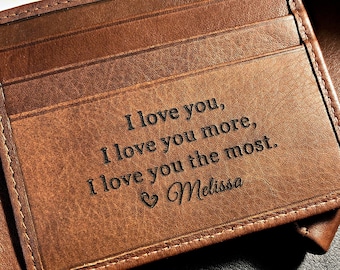 I love you,
I love you more,
I love you the most.
♡ Melissa